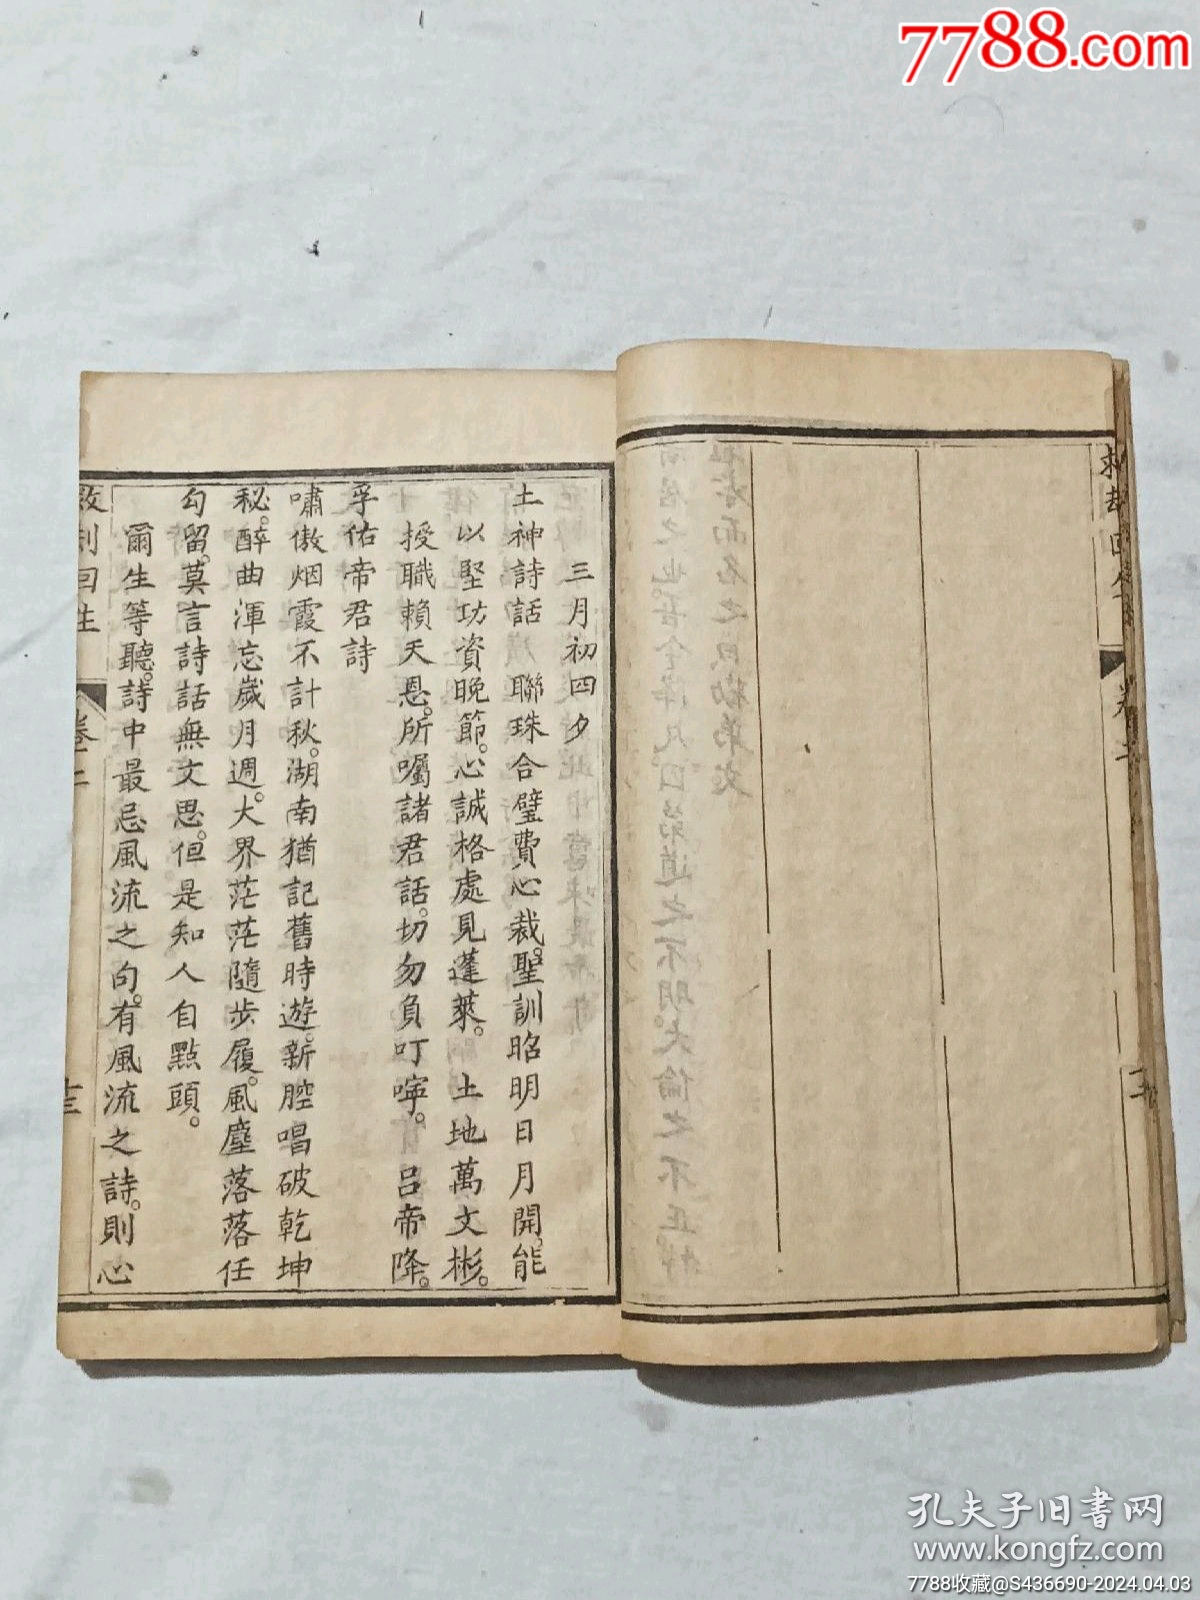 7788.com
救劫回生
卷二
三月初四夕
土神詩話 聯珠合璧費心裁。聖訓昭明日月開。能
以堅功資晚節。心誠格處見蓬萊。 土地萬文彬。
授職賴天恩。所囑諸君話。切勿負叮嚀。 吕帝降。
孚佑帝君詩
嘯傲烟霞不計秋。湖南猶記舊時遊。新腔唱破乾坤
秘。醉曲渾忘歲月週。大界茫茫隨步履。風塵落落任
勾留。莫言詩話無文思。但是知人自點頭。
爾生等聽。詩中最忌風流之句。有風流之詩。則心
救劫回生
卷二
孔夫子旧书网
www.kongfz.com
7788收藏@S436690-2024.04.03